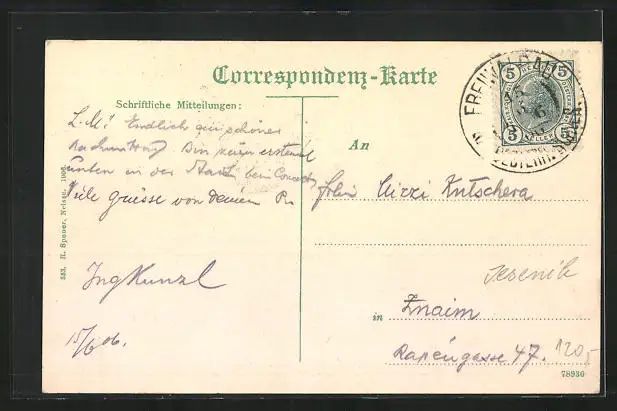 Correspondenz-Karte
Schriftliche Mitteilungen:
L. M! Endlich ein schöner
Nachmittag. Bin zum erstenmal
unten in der Stadt beim Concert,
Viele grüsse von deinem R.
Ing Kunzl
15/6 06.
553. R. Spener, Neisse. 1905
An
Frln Mizzi Kutschera
Jesenik
in Znaim
47. 120,-
78936
FREIWALDAU
5 5
5 HELLER 5